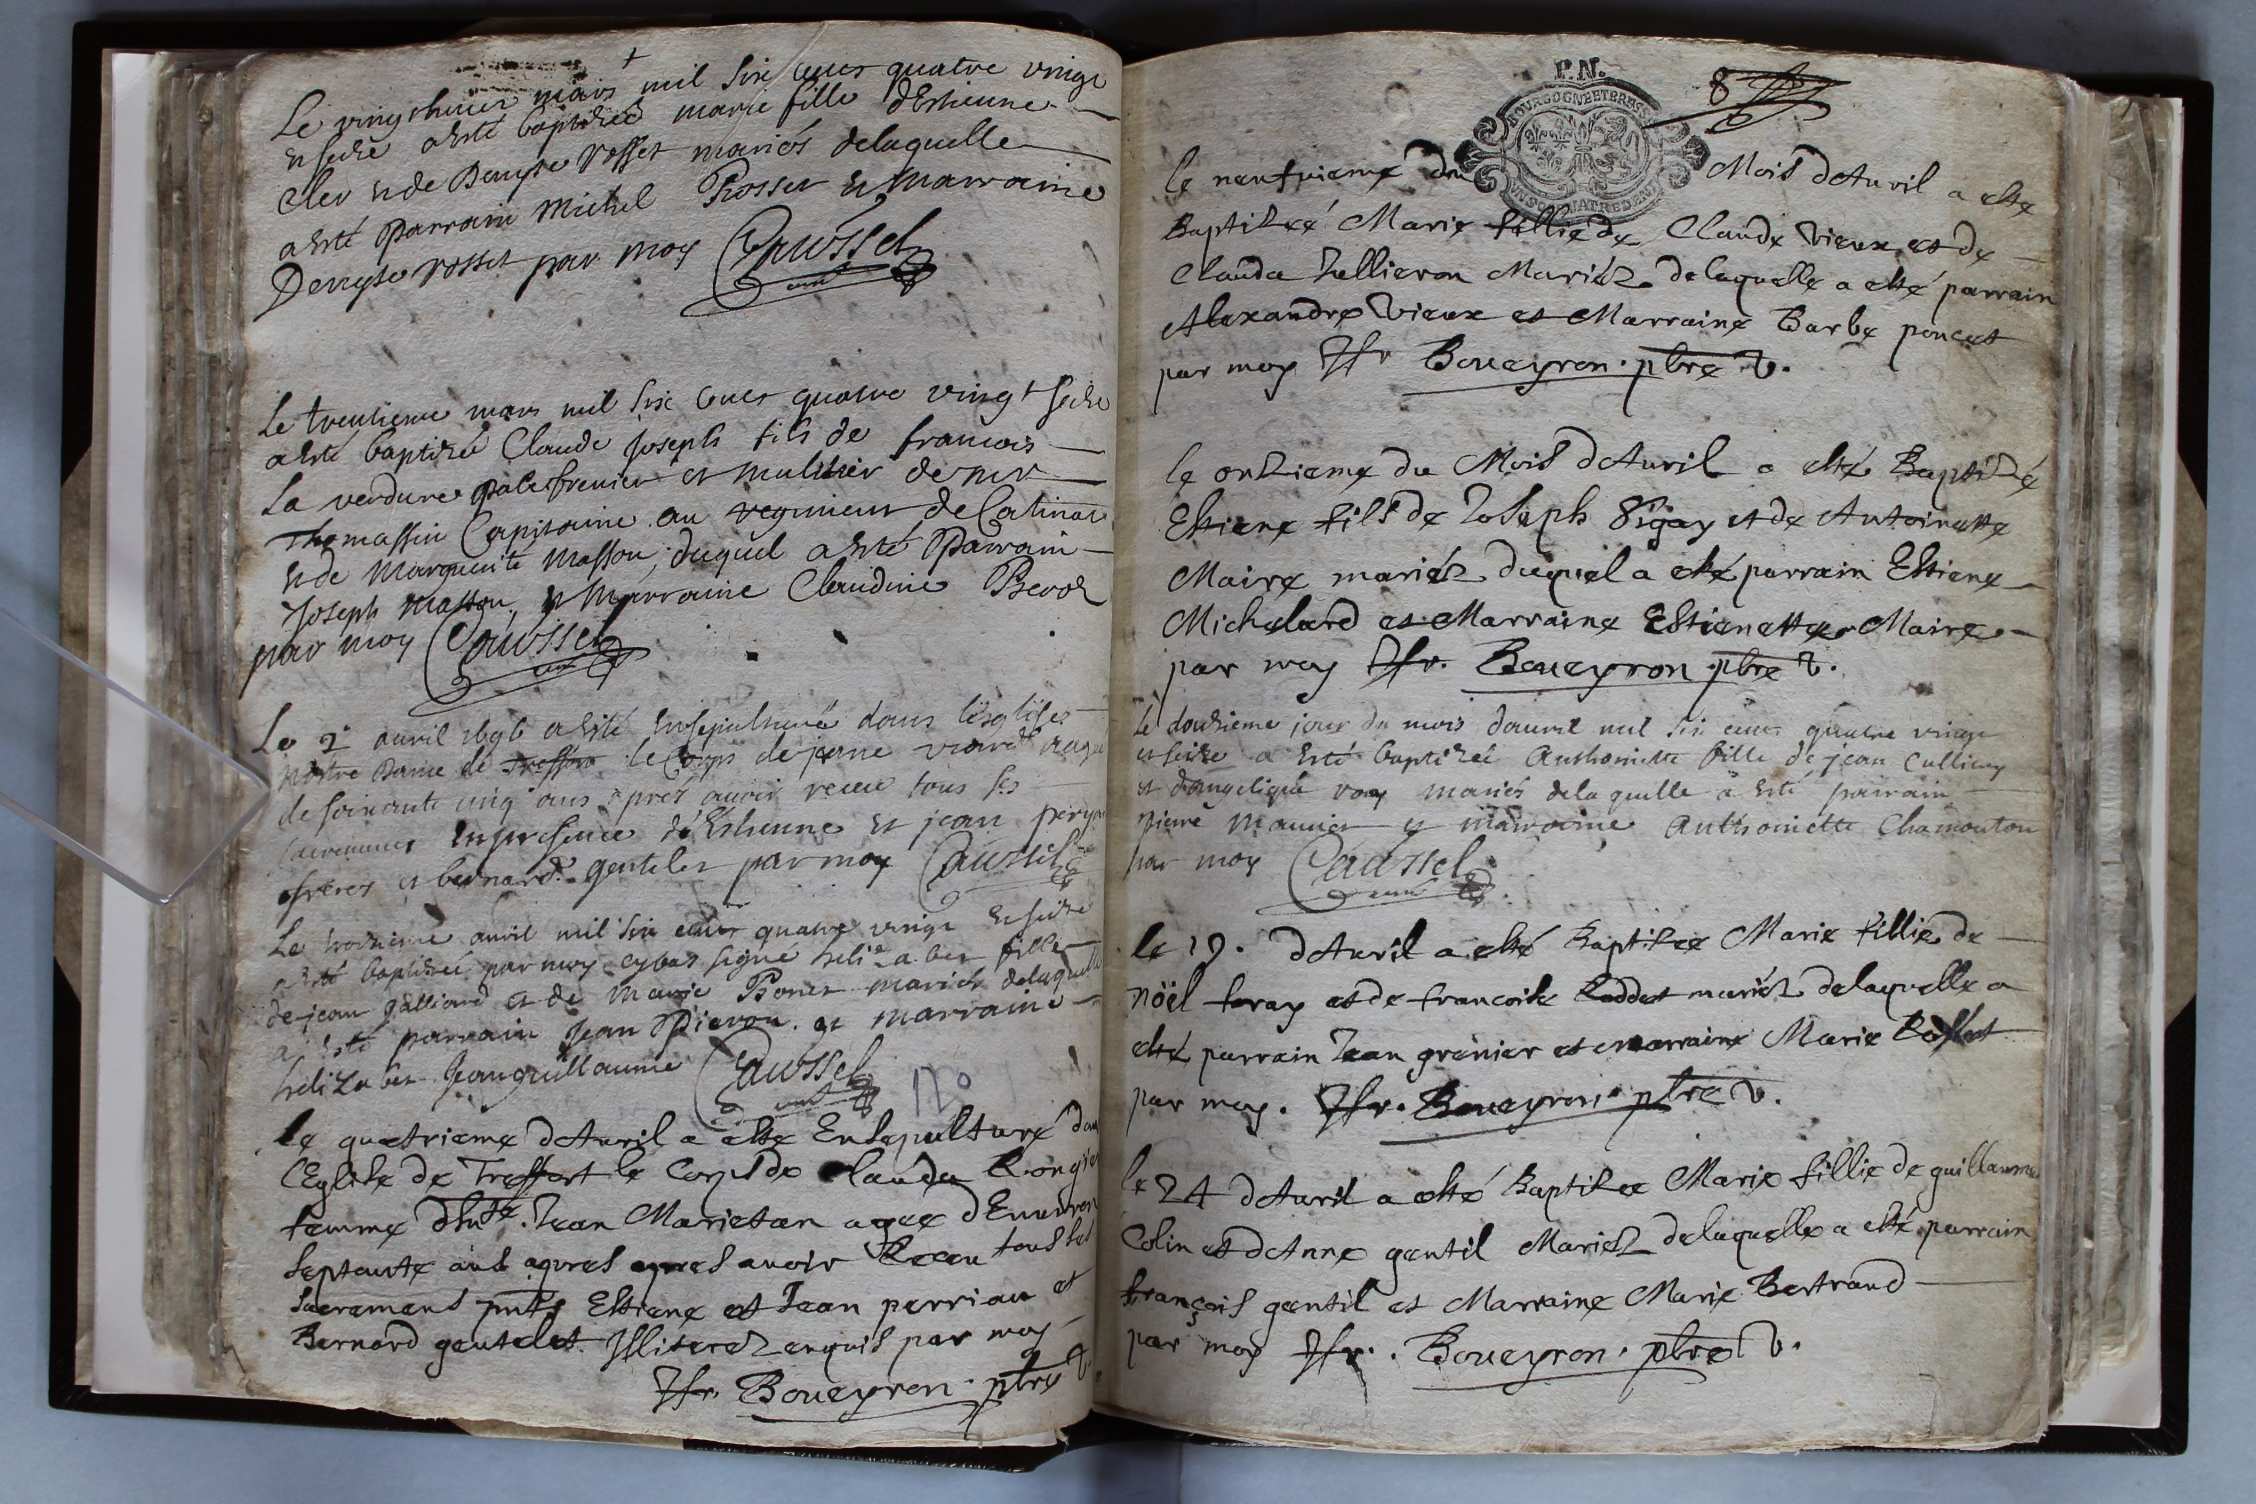 Le vingthuict mars mil six cens quatre vingt
et seize a esté baptizée marie fille d'Estienne
Cler et de Denyse rosset mariés de laquelle
a esté parrain Michel Rosset et marraine
Denyse rosset par moy Caussel
curé
Le trentieme mars mil six cens quatre vingt seize
a esté baptizé Claude Joseph fils de francois
La verdure palefrenier et muletier de mr
Thomassin Capitaine au regiment de Catinat
et de Marguerite Masson, duquel a esté Parrain
Joseph Masson, et Marraine Claudine
par moy Caussel
curé
Le 2e avril 1696 a esté ensepulturé dans l'esglise
nostre Dame de Treffort le Corps de jeane aagée
de soixante cinq ans apres avoir receu tous ses
sacremens en presence d'Estienne et jean
freres et bernard gentelet par moy Caussel
Le troisieme avril mil six cens quatre vingt et seize
a esté baptizée par moy cybas signé helizabet fille
de jean galliard et de Marie Ponet mariés de laquelle
a esté parrain Jean Pieron et marraine
helizabet Jeanguillaume Caussel
curé
170
le quatrieme d'Avril a esté Ensepulturé dans
l'Eglise de Treffort le Corps de Clauda Rongier
femme d'hte. Jean Marietan agee d'Environ
septante ans apres apres avoir Receu tous les
sacremens pnts Estiene et Jean perrian et
Bernard gentelet Illiterez enquis par moy
Jfr. Boveyron. pbre v.
P.N.
8
BOURGOGNE ET BRESSE
UN SOL QUATRE DEN
le neufvieme du Mois d'Avril a esté
Baptizeé Marie fillie de Claude Vieux et de
Clauda Jullieron Mariéz de laquelle a esté parrain
Alexandre Vieux et Marraine Barbe poncet
par moy Jfr Boveyron. pbre v.
le onzieme du Mois d'Avril a esté Baptizé
Estiene fils de Joseph Pigay et de Antoinette
Maire mariéz duquel a esté parrain Estiene
Michelard et Marraine Estienette Maire
par moy Jfr. Boveyron pbre v.
Le douzieme jour du mois d'avril mil six cens quatre vingt
et seize a esté baptizée Anthoinette fille de jean Cullieny
et d'angelique roy mariés de laquelle a esté parrain
pierre Maunier et marraine Anthoinette Chamouton
par moy Caussel
curé
le 19. d'Avril a esté Baptizee Marie fillie de
Nöel feray et de francoise Roddet mariéz de laquelle a
esté parrain Jean grenier et marraine Marie
par moy. Jfr. Boveyron. pbre v.
le 24 d'Avril a esté Baptizee Marie fillie de guillaume
Colin et d'Anne gentil Mariez de laquelle a esté parrain
françois gentil et Marraine Marie Bertrand
par moy Jfr. Boveyron. pbre v.